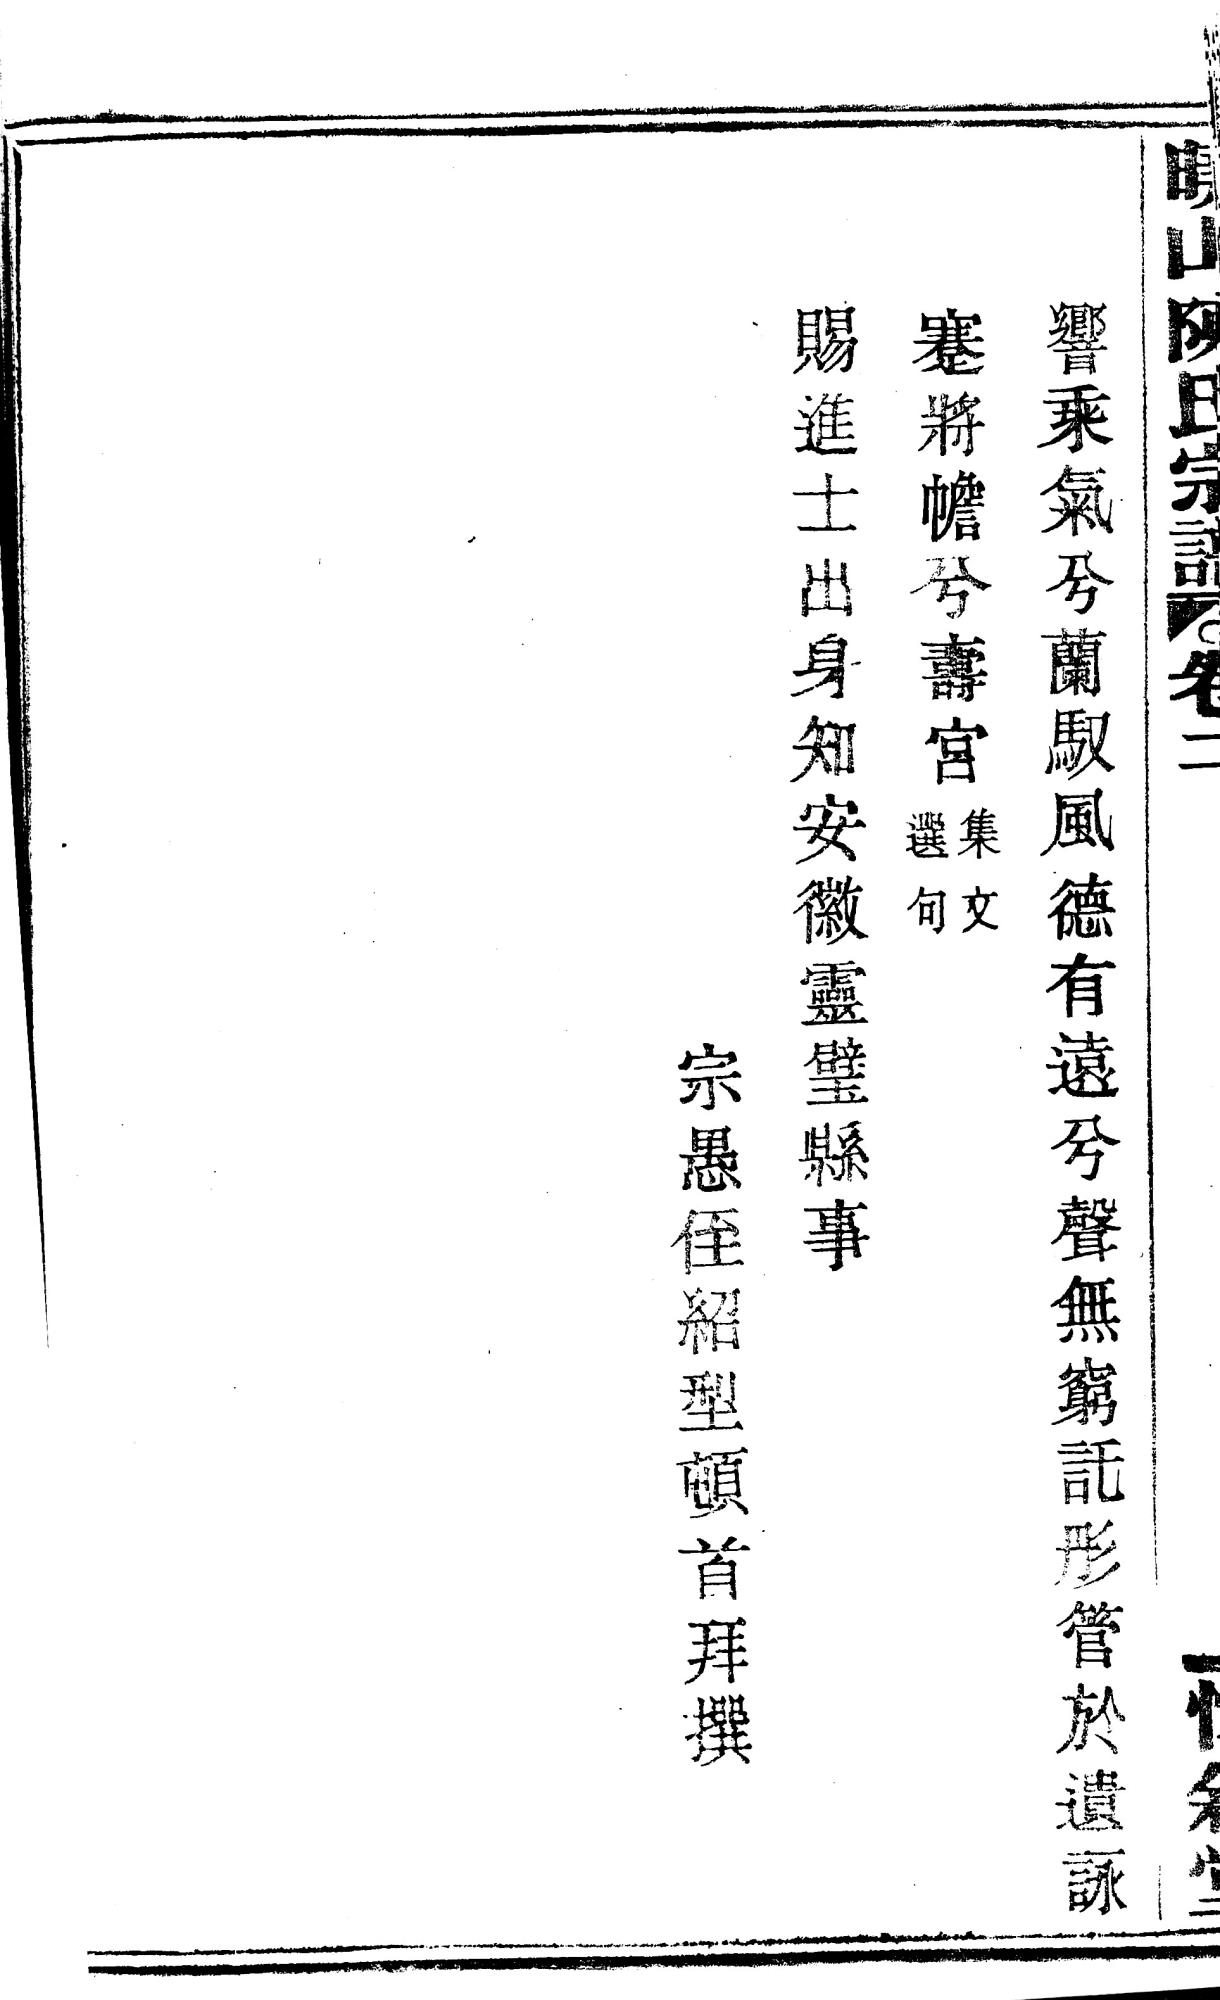 山陳氏宗譜 卷二
響乘氣兮蘭馭風德有遠兮聲無窮託彤管於遺詠
蹇將幨兮壽宮集文選句
賜進士出身知安徽靈璧縣事
宗愚侄紹型頓首拜撰